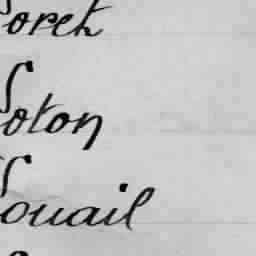 Soreh
Soton
Souail